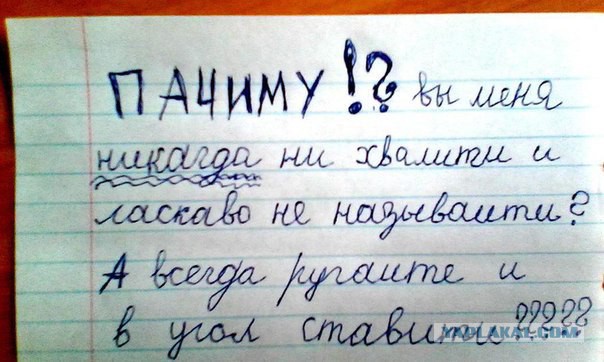 ПАЧИМУ!? вы меня
никагда ни хвалити и
ласкаво не называити?
А всегда ругаите и
в угол ставити?????
YAPLAKAL.COM